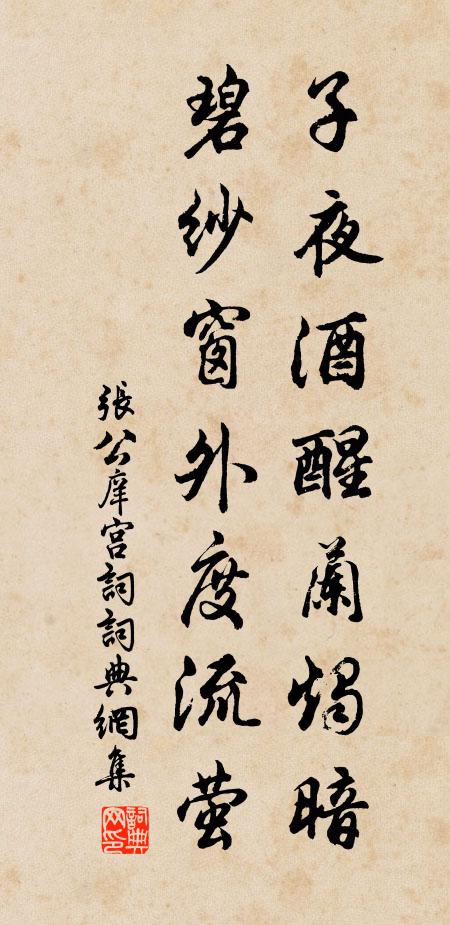 子夜酒醒蘭燭暗
碧紗窗外度流螢
張公庠宮詞詞典網集
詞典网印